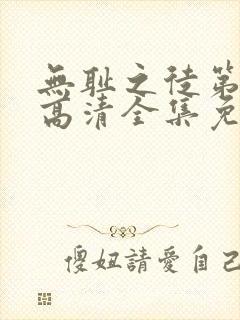 無耻之徒第
高清全集免
傻妞請愛自己